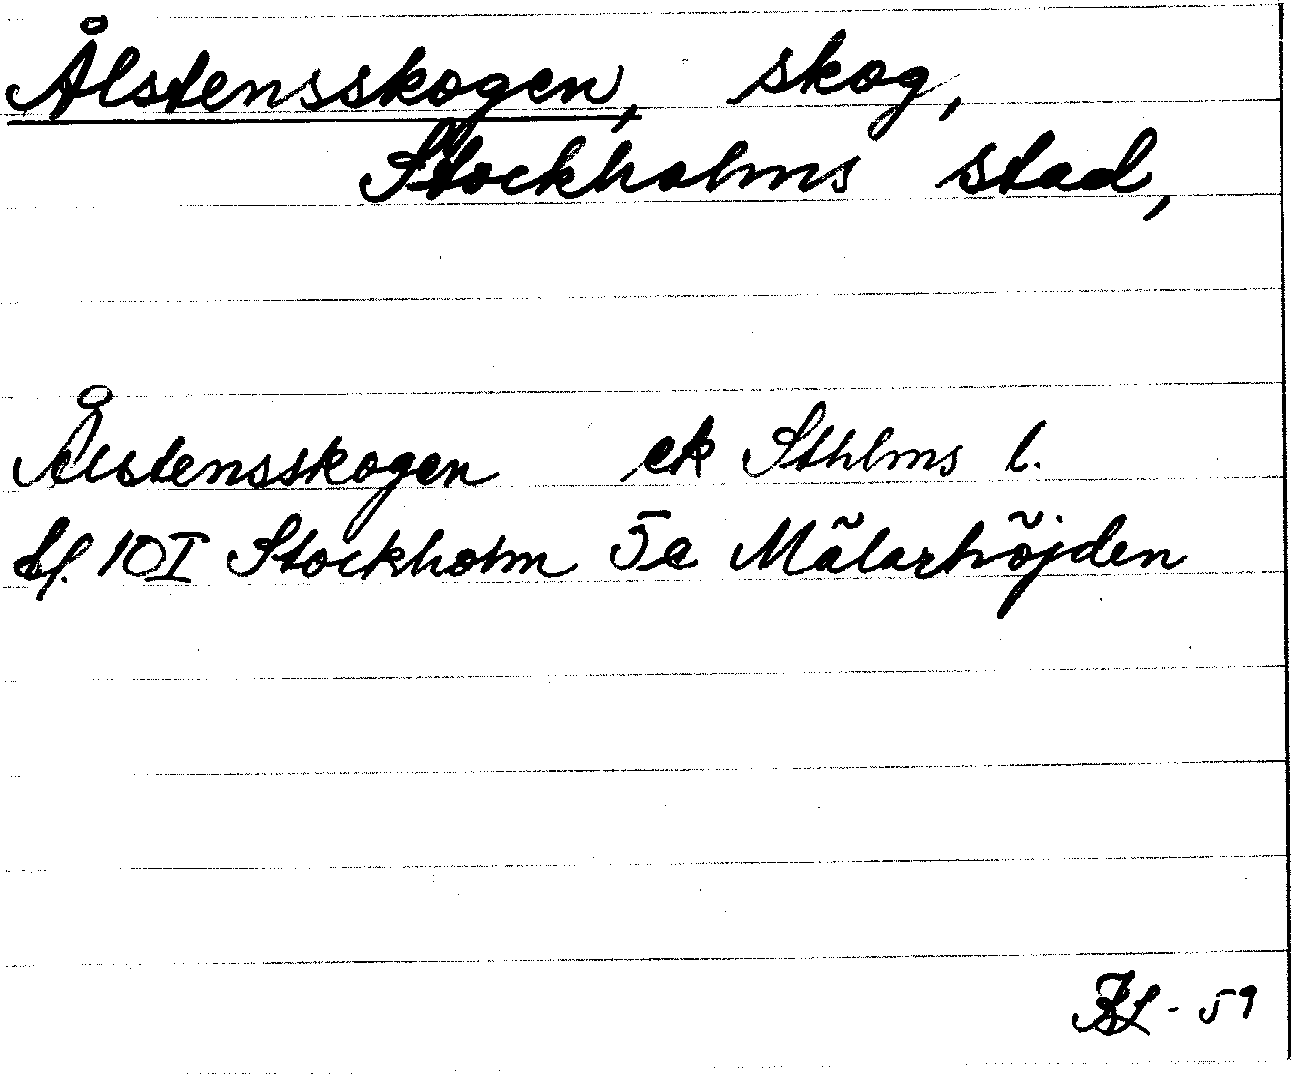 Ålstensskogen, skog,
Stockholms stad,
Ålstensskogen ek Sthlms l.
bl. 10I Stockholm 5a Mälarhöjden
-59